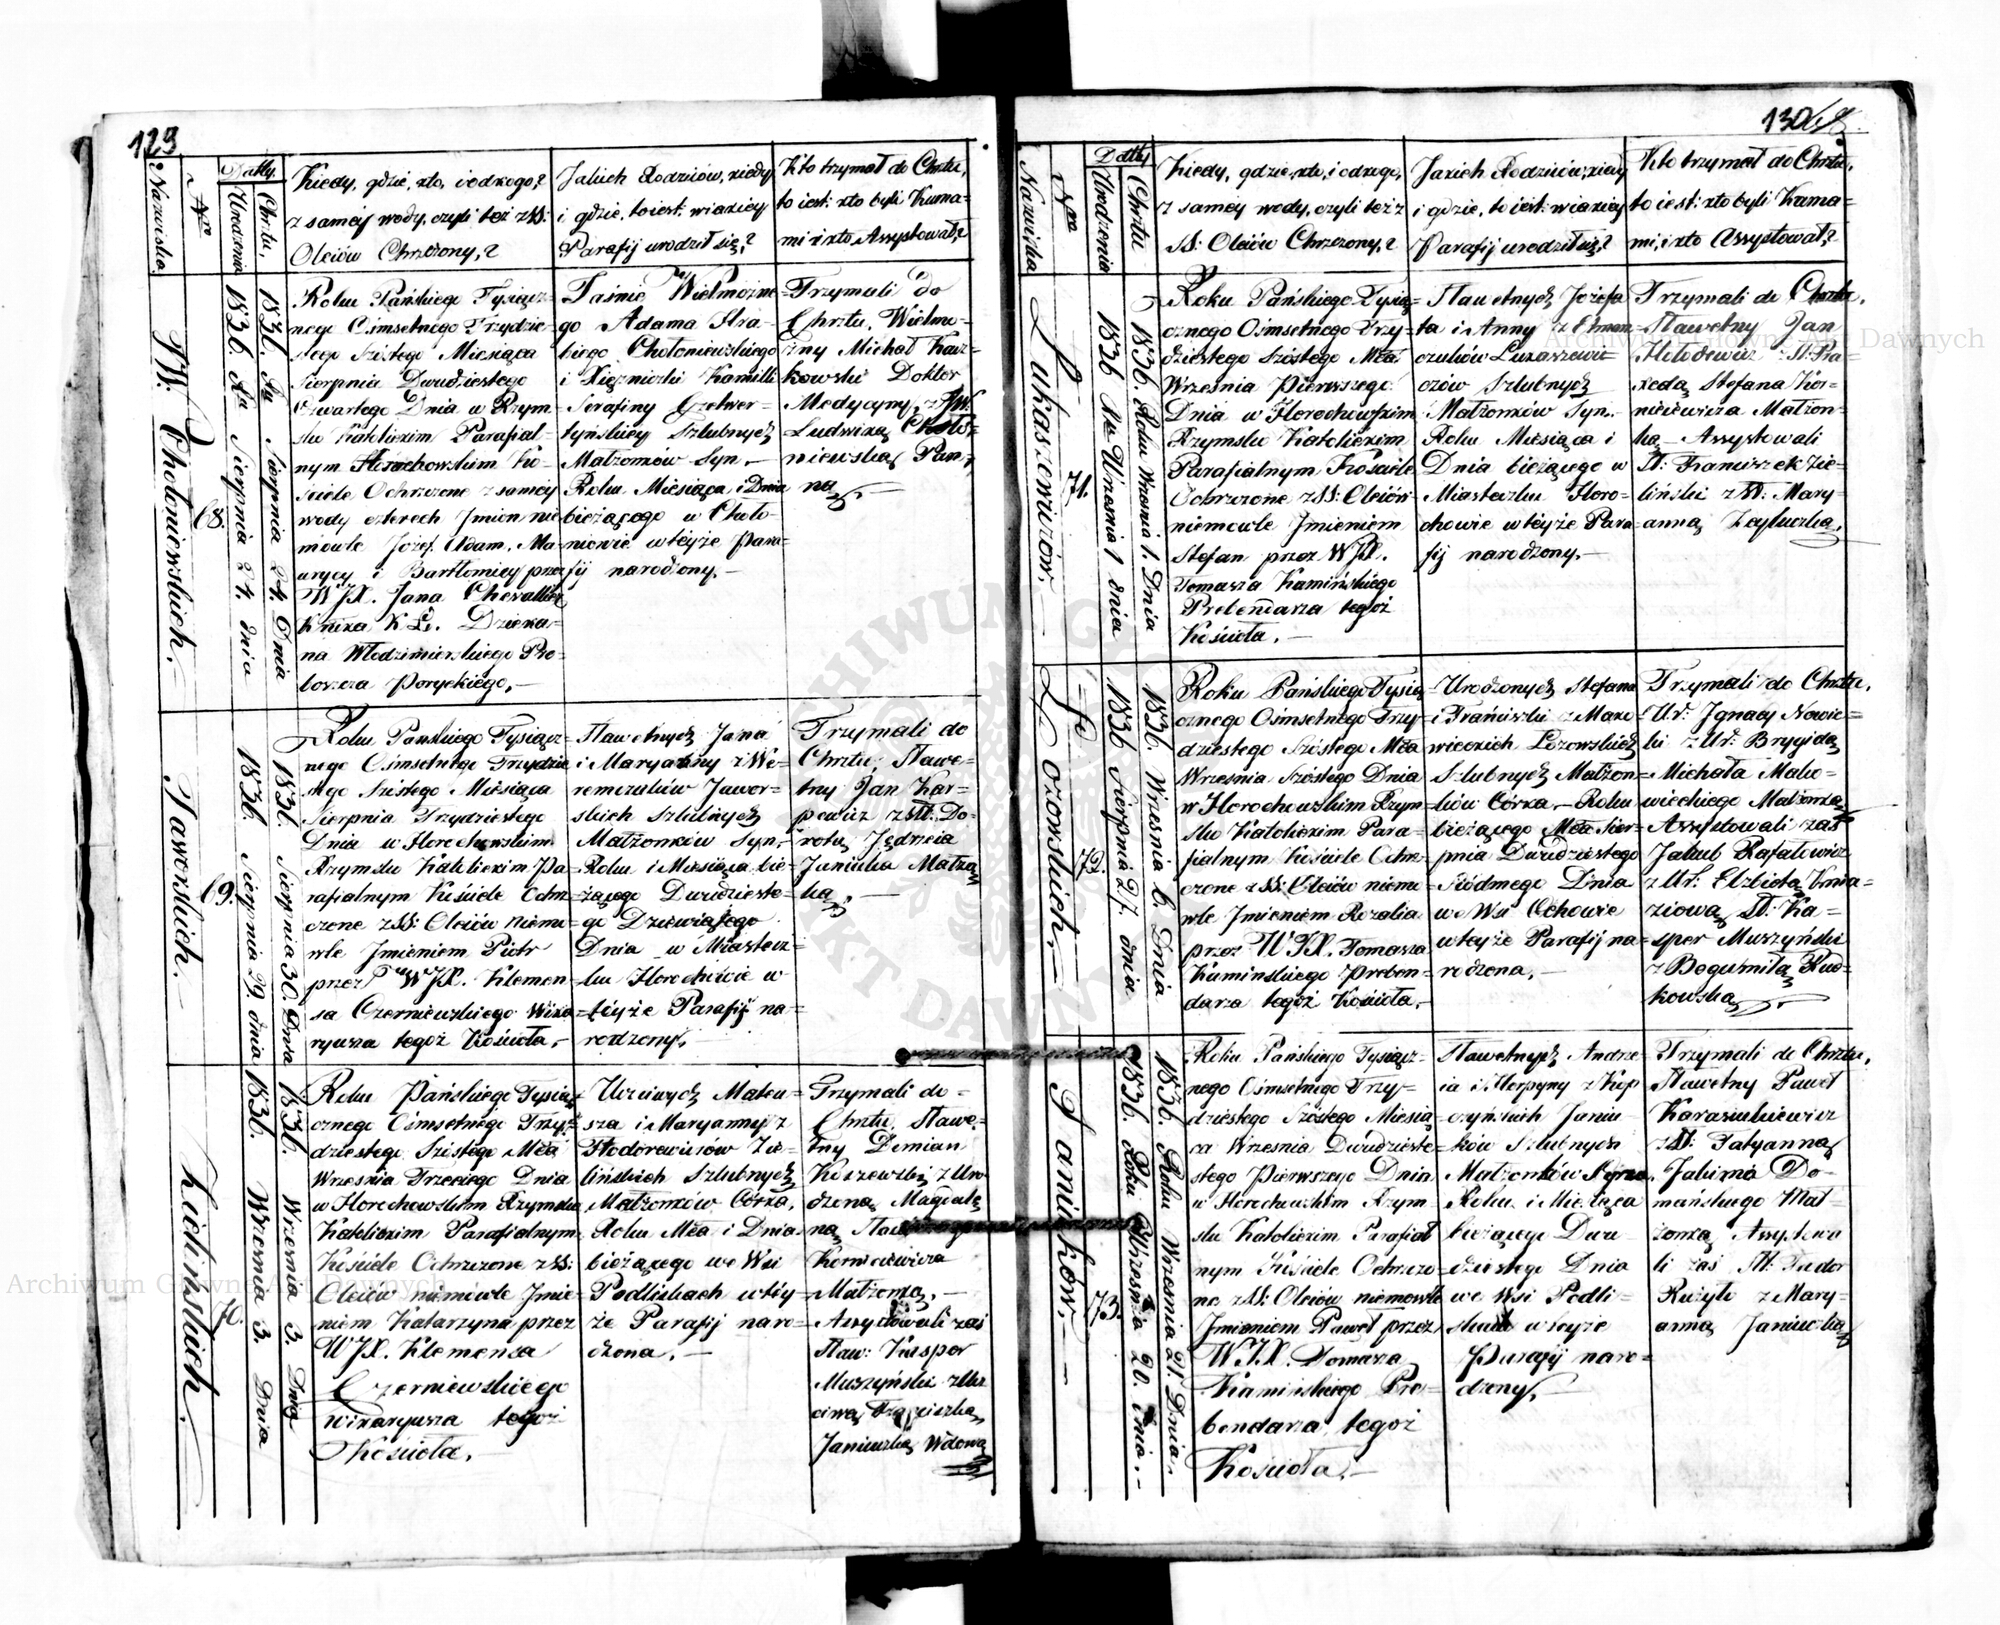 129
Nazwiska.
Nro
Datty.
Urodzenia
Chrztu.
Kiedy, gdzie, kto, i od kogo,?
z samey wody, czyli też z SS:
Oleiów Chrzczony,?
Jakich Rodziców, kiedy
i gdzie, to iest: w iakiey
Parafij urodził się,?
Kto trzymał do Chrztu,
to iest: kto byli Kuma-
mi i kto Assystował,?
JW. Chołoniewskich.
68.
1836. Au Sierpnia 24. dnia
1836. Au Sierpnia 24 Dnia
Roku Pańskiego Tysiącz-
nego Ośmsetnego Trzydzie-
stego Szóstego Miesiąca
Sierpnia Dwudziestego
Czwartego Dnia w Rzym-
sko Katolickim Parafial-
nym Horochowskim Ko-
ściele Ochrzczone z samey
wody czterech Jmion nie
mowle Józef, Adam, Ma-
urycy i Bartłomiey przez
WJX. Jana Chevallier
Knxa K. Ł. Dzieka-
na Włodzimierskiego Pro-
boszcza Poryckiego.
Jaśnie Wielmożne-
go Adama Hra-
biego Chołoniewskiego
i Xiężniczki Kamilli
Serafiny Czetwer-
tyńskiey Szlubnych
Małżonków Syn.
Roku Miesiąca i Dnia
bieżącego w Choło-
niewie w teyże Para-
fij narodzony.
Trzymali do
Chrztu, Wielmo-
żny Michał Kacz-
kowski Doktor
Medycyny, z JW.
Ludwiką Choło-
niewską Pan-
ną.
Jaworskich.
69.
1836. Sierpnia 29. dnia
1836. Sierpnia 30. Dnia
Roku Pańskiego Tysiącz-
nego Ośmsetnego Trzydzie
stego Szóstego Miesiąca
Sierpnia Trzydziestego
Dnia w Horochowskim
Rzymsko Katolickim Pa-
rafialnym Kościele Ochrz-
czone z SS: Oleiów niemo-
wle Jmieniem Piotr
przez WJX. Klemen-
sa Czerniewskiego Wika-
ryusza tegoż Kościoła.
Sławetnych Jana
i Maryanny z We-
remczuków Jawor-
skich Szlubnych
Małżonków Syn,
Roku i Miesiąca bie-
żącego Dwudzieste-
go Dziewiątego
Dnia w Miastecz-
ku Horochowie w
teyże Parafij na-
rodzony.
Trzymali do
Chrztu, Sławe-
tny Jan Kar-
powicz z Sł. Do-
rotą Jędrzeia
Janiuka Małżon
ką.
Zielińskich.
70.
1836. Września 3. Dnia
1836. Września 3. Dnia
Roku Pańskiego Tysią-
cznego Ośmsetnego Trzy-
dziestego Szóstego Mca
Września Trzeciego Dnia
w Horochowskim Rzymsko
Katolickim Parafialnym
Kościele Ochrzczone z SS:
Oleiów niemowle Jmie-
niem Katarzyna przez
WJX. Klemensa
Czerniewskiego
wikaryusza tegoż
Kościoła.
Uczciwych Mateu-
sza i Maryanny z
Fiodorewiczów Zie-
lińskich Szlubnych
Małżonków Córka.
Roku Mca i Dnia
bieżącego we Wsi
Podliskach w tey-
że Parafij naro-
dzona.
Trzymali do
Chrztu, Sławe-
tny Demian
Koszewski z Uro-
dzoną Magdale
ną
Korniewicza
Małżonką.
Assystowali zaś
Sław: Kasper
Muszyński z Ucz
ciwą Franciszką
Janiuczką Wdową
130
Nazwiska
Nro
Datty
Urodzenia
Chrztu
Kiedy, gdzie, kto, i od kogo,
z samey wody, czyli też z
SS: Oleiów Chrzczony,?
Jakich Rodziców, kiedy
i gdzie, to iest: w iakiey
Parafij urodził się,?
Kto trzymał do Chrztu,
to iest: kto byli Kuma-
mi, i kto Assystował,?
Łukaszewiczów.
71.
1836 Au Września 1 dnia
1836. Roku Września 1. Dnia
Roku Pańskiego Tysią-
cznego Ośmsetnego Trzy-
dziestego Szóstego Mca
Września Pierwszego
Dnia w Horochowskim
Rzymsko Katolickim
Parafialnym Kościele
Ochrzczone z SS: Oleiów
niemowle Jmieniem
Stefan przez WJX.
Tomasza Kamińskiego
Prebendarza tegoż
Kościoła.
Sławetnych Józefa
ta i Anny z
czuków Łukaszewi-
czów Szlubnych
Małżonków Syn.
Roku Miesiąca i
Dnia bieżącego w
Miasteczku Horo-
chowie w teyże Para
fij narodzony.
Trzymali do Chrztu,
Sławetny Jan
Hołodowicz z Sł. Pra-
xedą Stefana Kor-
niewicza Małżon-
ką. Assystowali
Sł: Franciszek Zie-
liński z Sł: Mary-
anną
Łozowskich.
72.
1836 Sierpnia 27. dnia
1836. Września 6. Dnia
Roku Pańskiego Tysią-
cznego Ośmsetnego Trzy-
dziestego Szóstego Mca
Września Szóstego Dnia
w Horochowskim Rzym-
sko Katolickim Para-
fialnym Kościele Ochrz-
czone z SS: Oleiów niemo-
wle Jmieniem Rozalia
przez WJX. Tomasza
Kamińskiego Preben-
darza tegoż Kościoła.
Urodzonych Stefana
i Franciszki z Mako-
wieckich Łozowskich
Szlubnych Małżon-
ków Córka. Roku
bieżącego Mca Sier-
pnia Dwudziestego
Siódmego Dnia
we Wsi Ochowie
w teyże Parafij na-
rodzona.
Trzymali do Chrztu,
Ur: Jgnacy Nowic-
ki z Ur: Brygidą
Michała Mako-
wieckiego Małżonką
Assystowali zaś
Jakub Rafałowicz
z Ur: Elżbietą Knia-
ziową, Sł: Ka-
sper Muszyński
z Bogumiłą Rud-
kowską.
Janiuków.
73.
1836. Roku Września 20. dnia.
1836. Roku Września 21. Dnia.
Roku Pańskiego Tysiącz-
nego Ośmsetnego Trzy-
dziestego Szóstego Miesią-
ca Września Dwudzieste-
stego Pierwszego Dnia
w Horochowskim Rzym-
sko Katolickim Parafial
nym Kościele Ochrzczo-
ne z SS: Oleiów niemowle
Jmieniem Paweł przez
WJX. Tomasza
Kamińskiego Pre-
bendarza tegoż
Kościoła.
Sławetnych Andrze-
ia i Horpyny z Kup
czyńskich Janiu-
ków Szlubnych
Małżonków Syn.
Roku i Miesiąca
bieżącego Dwu-
dziestego Dnia
we Wsi Podli-
skach w teyże
Parafij naro-
dzony.
Trzymali do Chrztu,
Sławetny Paweł
Karasiukiewicz
z Sł: Tatyanną
Jakima Do-
mańskiego Mał-
żonką, Assystowa
li zaś Sł: Fiedor
Rużyło z Mary-
anną Janiuczką
Archiwum Główne Akt Dawnych
Archiwum Główne Akt Dawnych